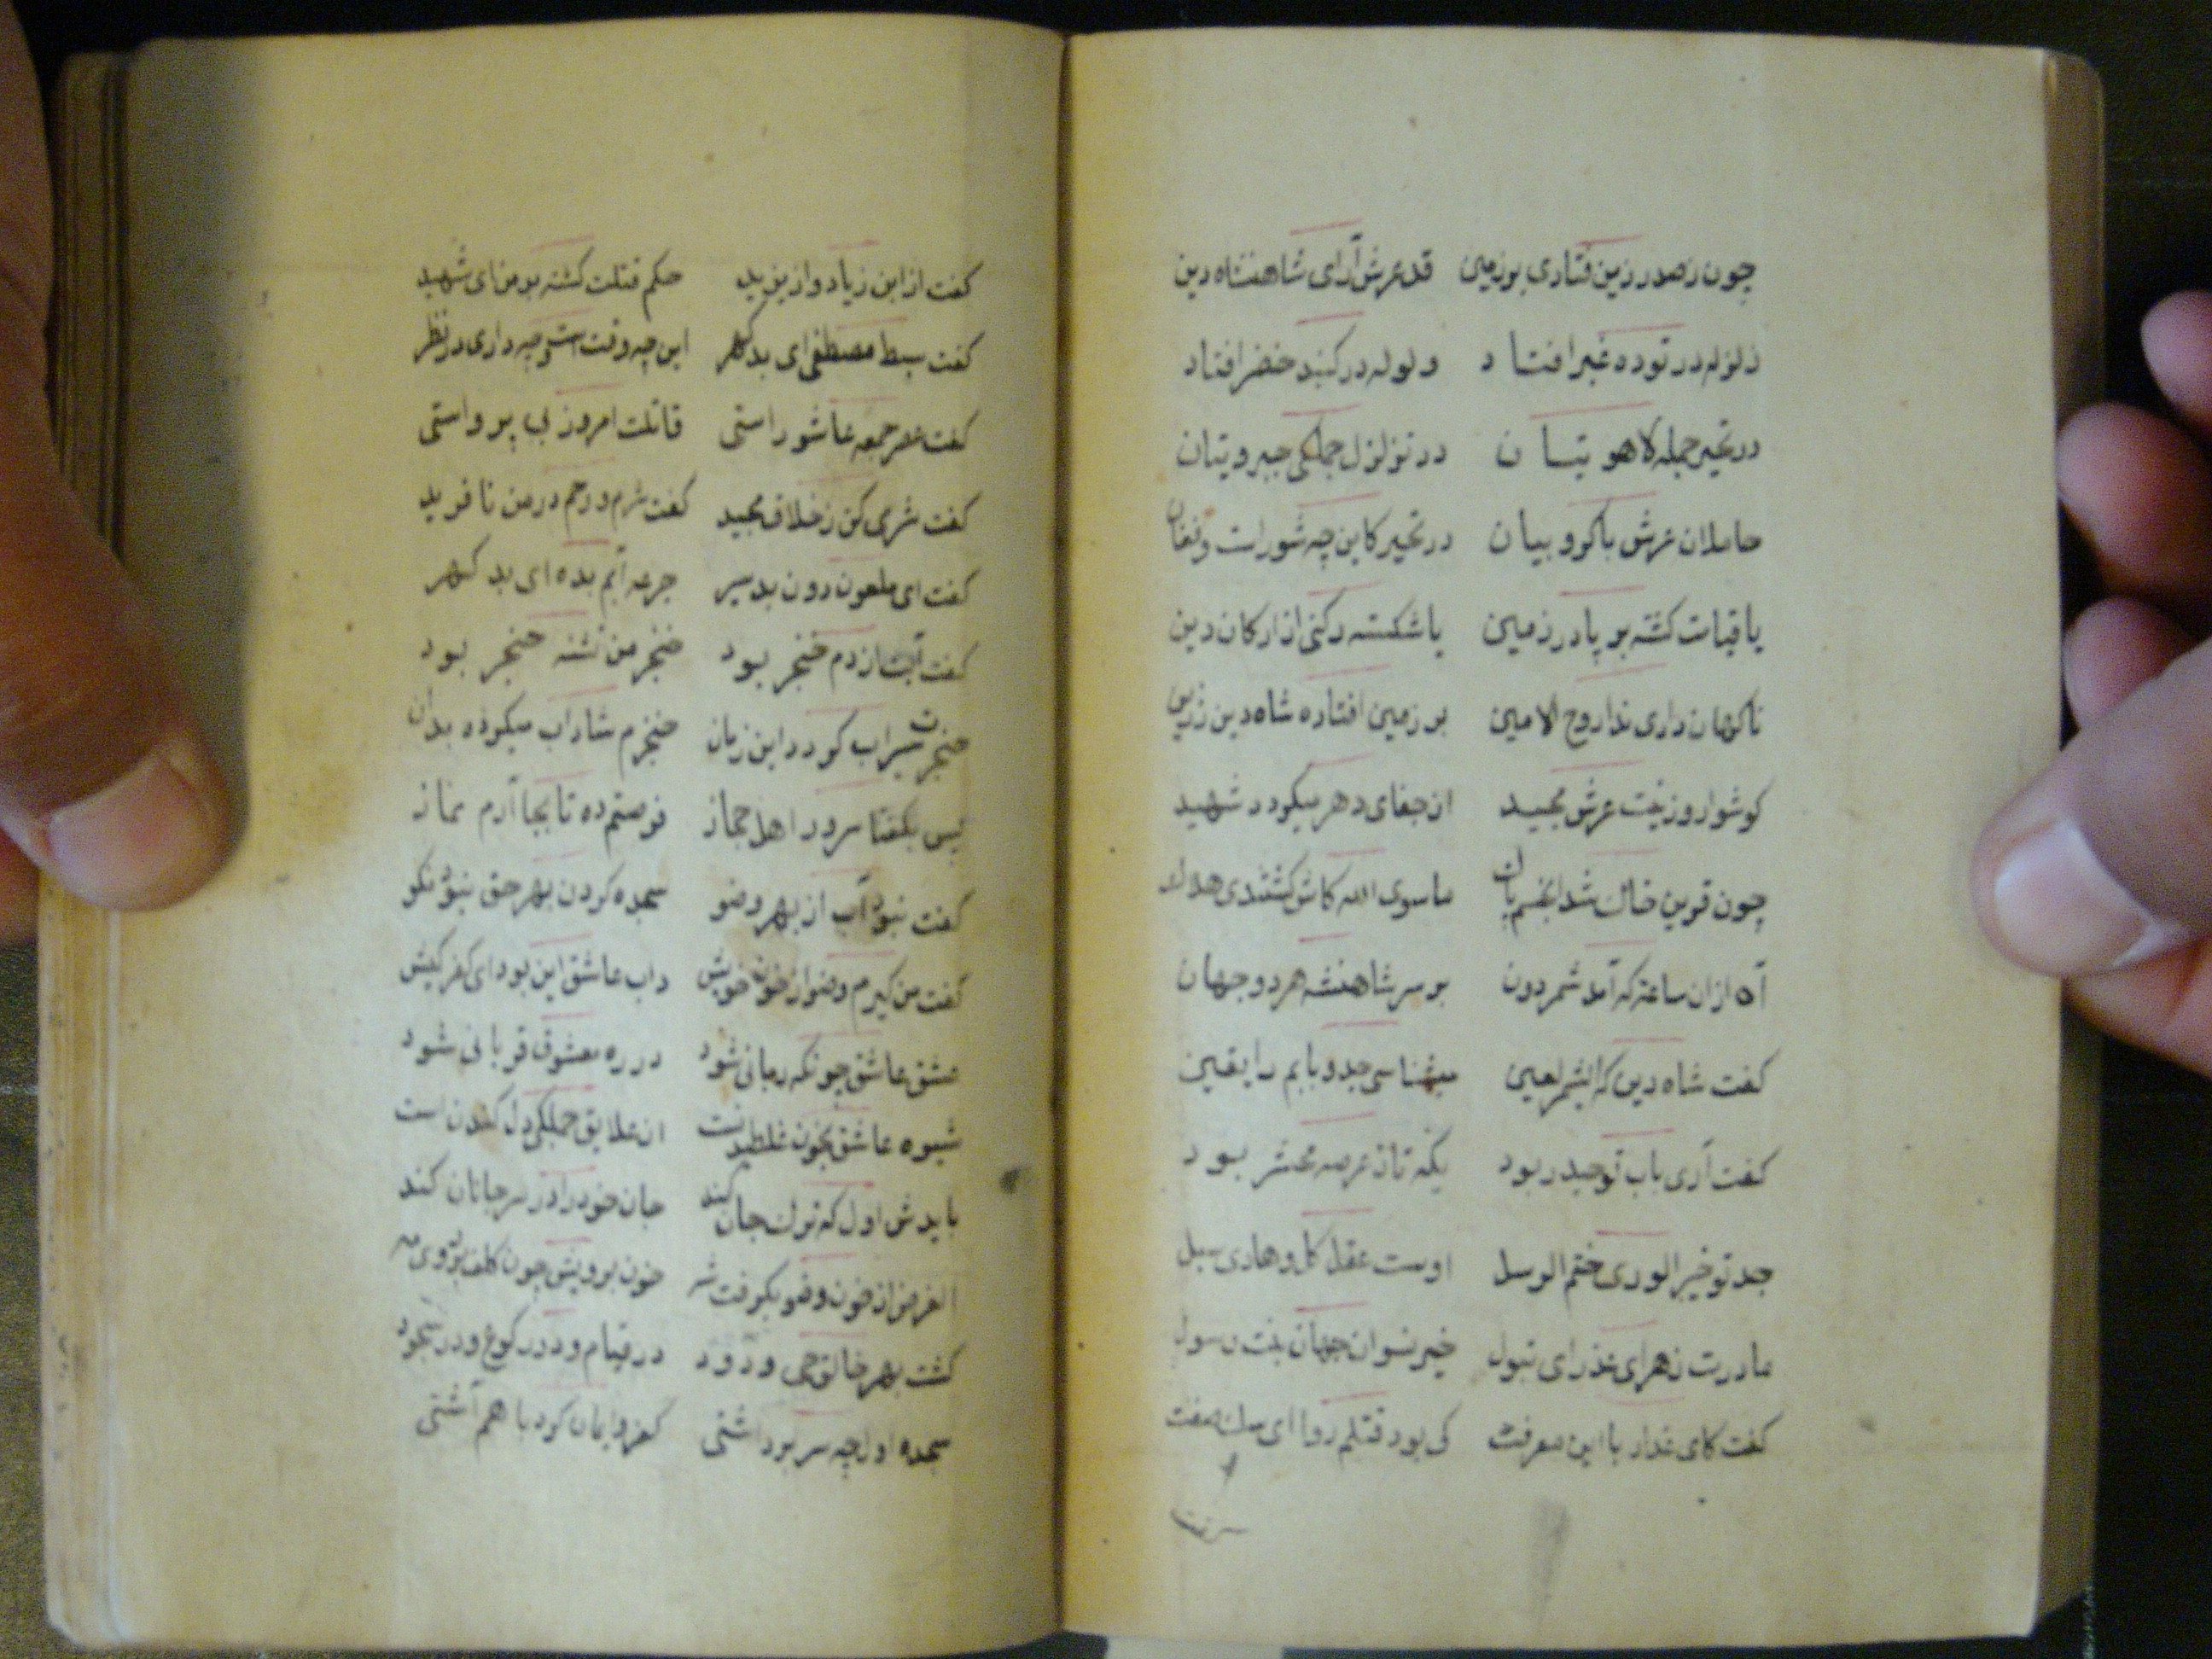 چون ز صدر زین فتادی بر زمین قد عرش آرای شاهنشاه دین
زلزله در توده غبرا افتاد ولوله در کنبد خضرا فتاد
در تحیر جمله لاهوتیان در تزلزل جملکی جبروتیان
حاملان عرش با کروبیان در تحیر کاین چه شور است و فغان
یا قیامت کشته بر پا در زمین یا شکسته رکنی از ارکان دین
ناکهان داری ندا روح الامین بر زمین افتاده شاه دین ززین
کوشوار و زینت عرش مجید از جفای دهر میکردد شهید
چون قرین خاک شد این جسم پاک ماسوی الله کاش کشتندی هلاک
آه ازان ساعت که آمد شمر دون بر سر شاهنشه هر دو جهان
کفت شاه دین که ای شمر لعین میشناسی جد و بابم را یقین
کفت آری باب تو حیدر بود یکه تاز عرصه محشر بود
جد تو خیر الوری ختم الرسل اوست عقل کل و هادی سبل
مادرت زهرای عذرای بتول خیر نسوان جهان بنت رسول
کفت کای غدار با این معرفت کی بود قتلم روا ای سک صفت
کفت از ابن زیاد و از یزید حکم قتلت کشته بر من ای شهید
کفت سبط مصطفی ای بد کهر این چه وقت است و چه داری در نظر
کفت عصر جمعه عاشوراستی قاتلت امروز بی پرواستی
کفت شرمی کن ز خلاق مجید کفت شرم و رحم در من نافرید
کفت ای ملعون دون بد سیر جرعه آبم بده ای بد کهر
کفت آبت از دم خنجر بود خنجر من تشنه حنجر بود
حنجرت سیراب کردد این زمان خنجرم شاداب میکردد بدان
پس بکفتا سرور اهل حجاز فرصتم ده تا بجا آرم نماز
کفت نبود آب از بهر وضو سجده کردن بهر حق نبود نکو
کفت من کیرم وضو از خون خویش داب عاشق این بود ای کفر کیش
عشق عاشق چونکه ربانی شود در ره معشوق قربانی شود
شیوه عاشق بخون غلطیدنست از علایق جملکی دل کندن است
بایدش اول که ترک جان کند جان خود را در سر جانان کند
الغرض از خون وضو بکرفت شه خون برویش چون کلف بر روی مه
کشت بهر خالق حی ودود در قیام و در رکوع و در سجود
سجده اول چه سر برداشتی کفر و ایمان کرد با هم آشتی